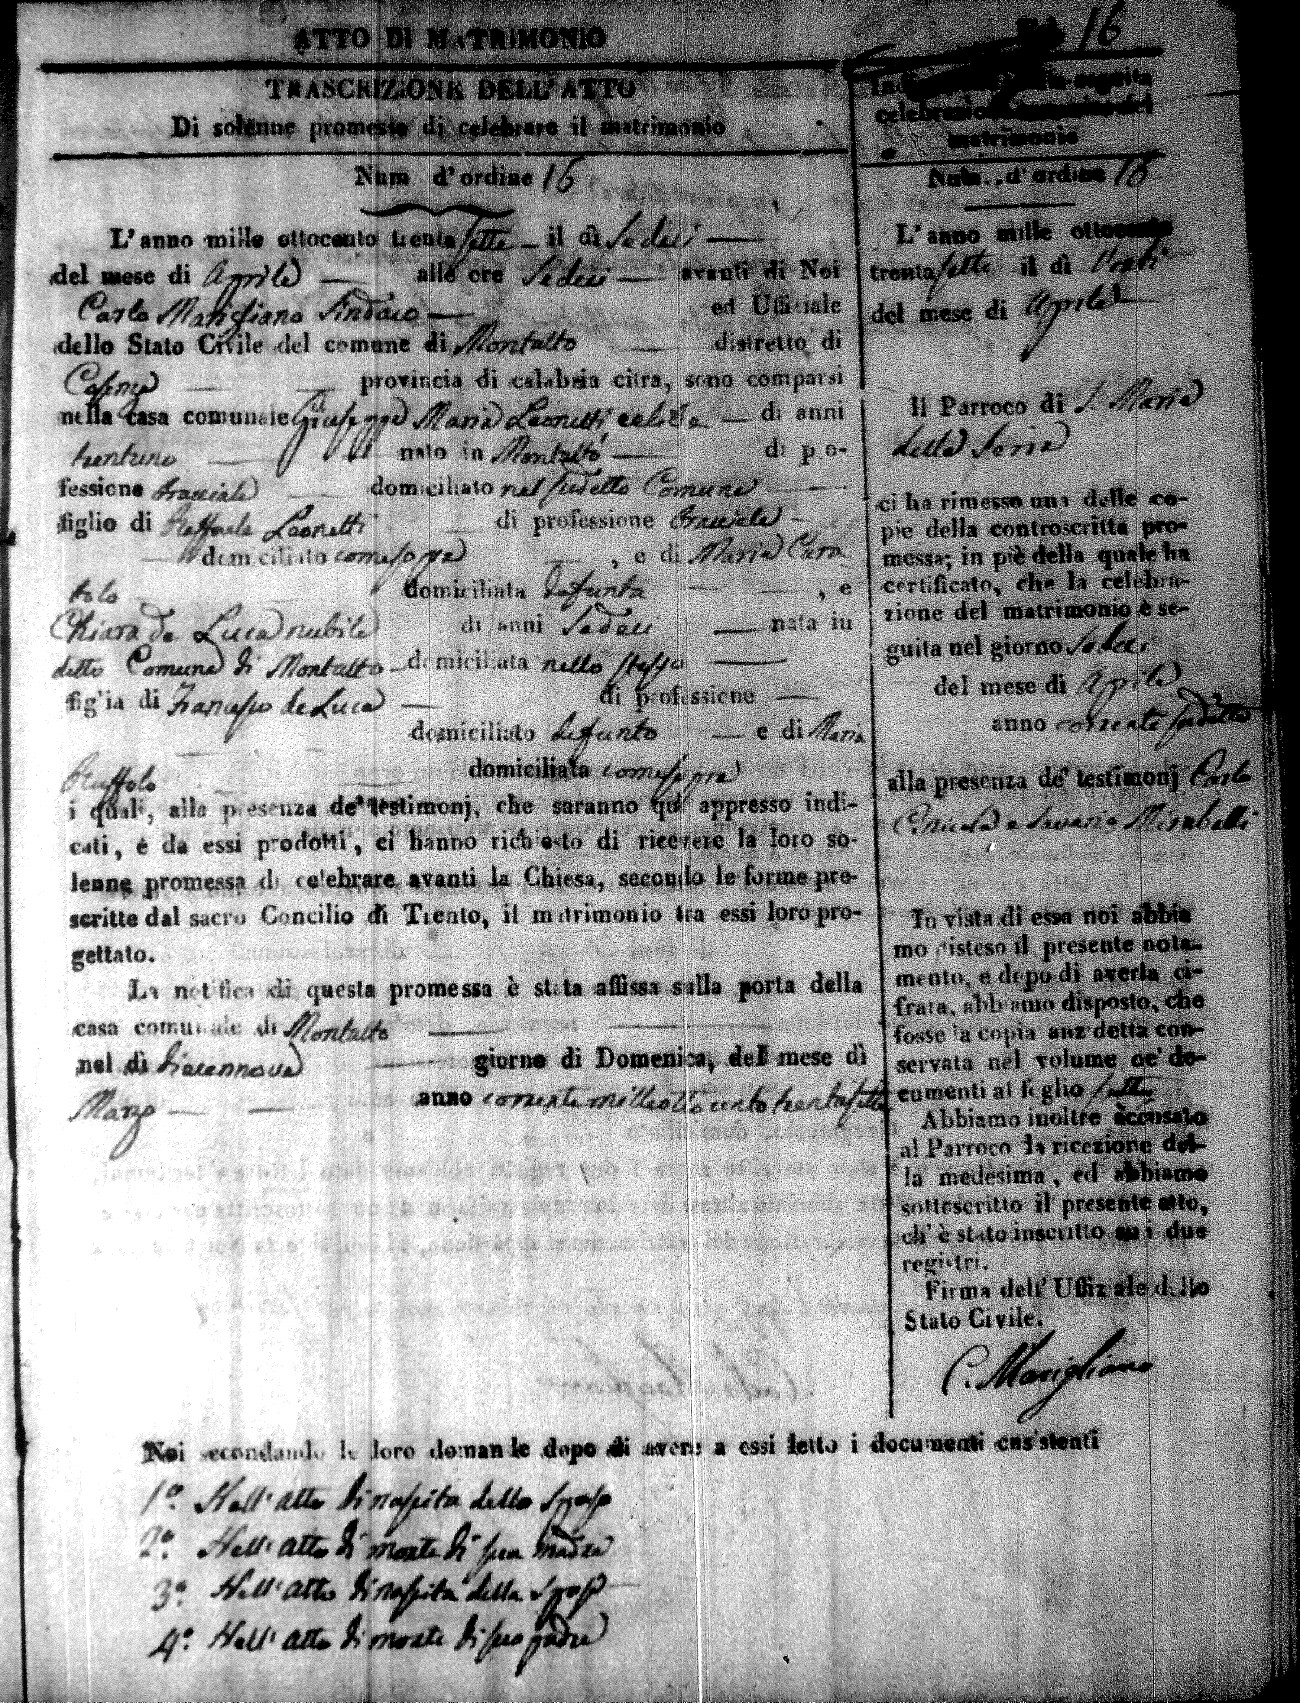 ATTO DI MATRIMONIO
TRASCRIZIONE DELL'ATTO
Di solenne promessa di celebrare il matrimonio
Num d'ordine 16
L'anno mille ottocento trenta sette il dì Sedeci
del mese di Aprile alle ore Sedeci avanti di Noi
Carlo Marigliano Sindaco ed Uffiziale
dello Stato Civile del comune di Montalto distretto di
provincia di calabria citra, sono comparsi
nella casa comunale Giuseppe Maria Leonetti celibe di anni
trentuno nato in Montalto di pro-
fessione bracciale domiciliato nel sudetto Comune
figlio di Raffaele Leonetti di professione bracciale
domiciliato come sopra, e di Maria Caro
tolo domiciliata defunta, e
Chiara de Luca nubile di anni Sedeci nata in
detto Comune di Montalto domiciliata nello stesso
figlia di Francesco de Luca di professione
domiciliato defunto e di Maria
Ruffolo domiciliata come sopra
i quali, alla presenza de' testimonj, che saranno qui appresso indi-
cati, e da essi prodotti, ci hanno richiesto di ricevere la loro so-
lenne promessa di celebrare avanti la Chiesa, secondo le forme pre-
scritte dal sacro Concilio di Trento, il matrimonio tra essi loro pro-
gettato.
La notifica di questa promessa è stata affissa sulla porta della
casa comunale di Montalto
nel dì diecennove giorno di Domenica, del mese di
Marzo anno corrente milleottocento trentasette
16
seguita
celebrazione del
matrimonio
Num. d'ordine 16
L'anno mille ottocento
trenta sette il dì Venti
del mese di Aprile
Il Parroco di S. Maria
della Serra
ci ha rimesso una delle co-
pie della controscritta pro-
messa; in piè della quale ha
certificato, che la celebra-
zione del matrimonio è se-
guita nel giorno sedeci
del mese di Aprile
anno corrente sudetto
alla presenza de' testimonj Carlo
e Saverio Mirabelli
In vista di essa noi abbia
mo disteso il presente nota-
mento, e dopo di averla ci-
frata, abbiamo disposto, che
fosse la copia anzidetta con-
servata nel volume de' do-
cumenti al foglio sette
Abbiamo inoltre accusato
al Parroco la ricezione del-
la medesima, ed abbiamo
sottoscritto il presente atto,
ch' è stato inscritto su i due
registri.
Firma dell' Uffiziale dello
Stato Civile.
C. Marigliano
Noi secondando le loro domande dopo di avere a essi letto i documenti consistenti
1º Nell' atto di nascita dello Sposo
2º Nell' atto di morte di sua madre
3º Nell' atto di nascita della Sposa
4º Nell' atto di morte di suo padre